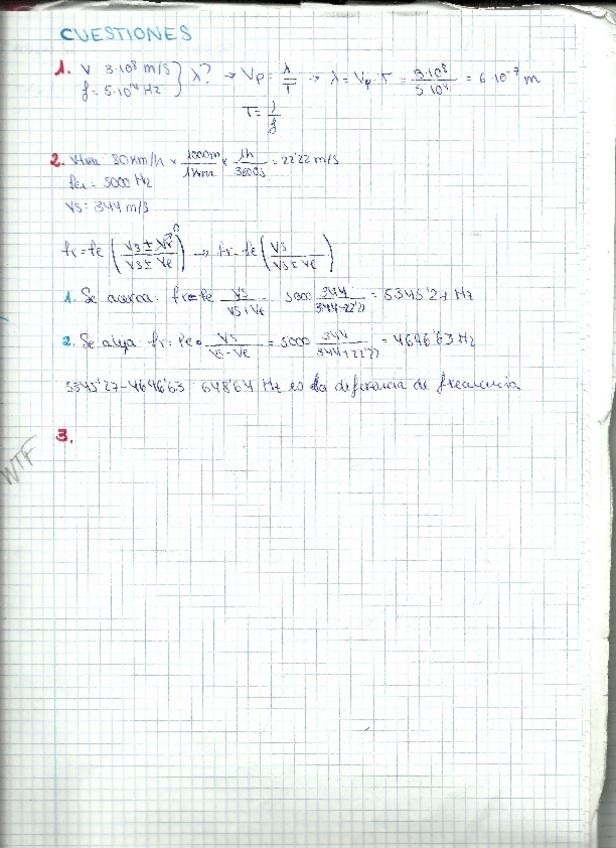 CUESTIONES
1. V 3·10⁸ m/s } λ? → Vp = λ/T → λ = Vp · T = 3·10⁸/5·10¹⁴ = 6·10⁻⁷ m
f = 5·10¹⁴ Hz
T = 1/f
2. 80 km/h × 1000m/1km × 1h/3600s = 22'22 m/s
= 5000 Hz
Vs = 344 m/s
fr = fe ( Vs ± Vr / Vs ± Ve ) → fr = fe ( Vs / Vs ± Ve )
1. Se acerca: fr = fe Vs / Vs + Ve 5000 344 / 344-22'22 = 5345'27 Hz
2. Se aleja fr = fe · Vs / Vs - Ve = 5000 344 / 344+22'22 = 4696'63 Hz
5345'27 - 4696'63 648'64 Hz es la diferencia de frecuencia
3.
WTF